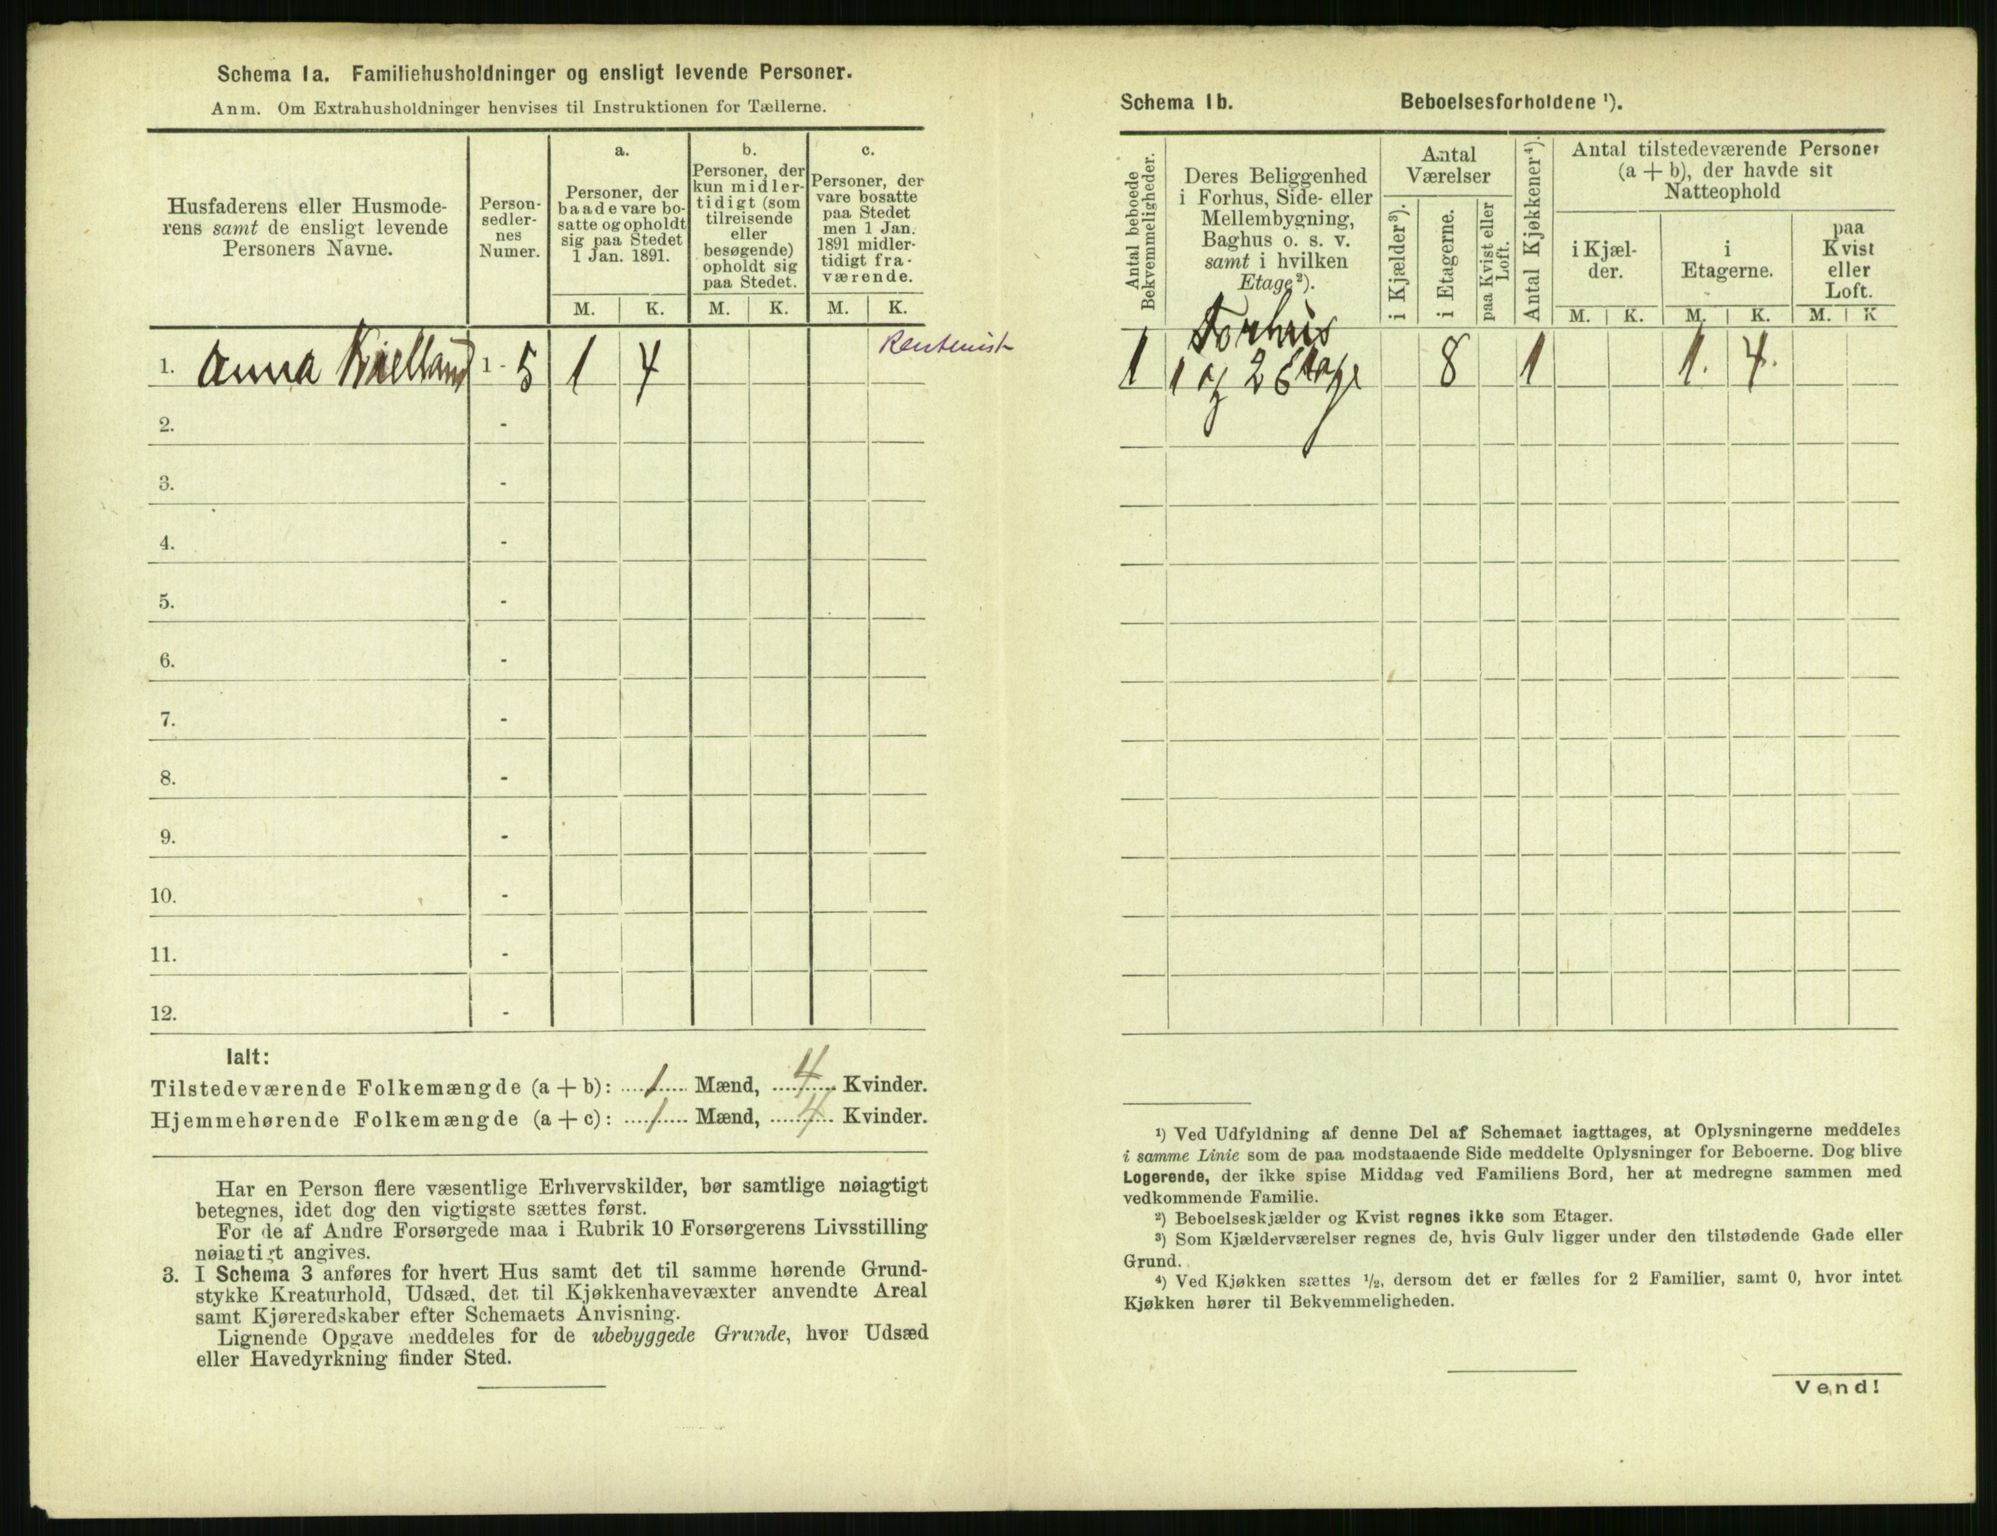 Schema 1a. Familiehusholdninger og ensligt levende Personer.
Anm. Om Extrahusholdninger henvises til Instruktionen for Tællerne.
Husfaderens eller Husmode-
rens samt de ensligt levende
Personers Navne.
Person-
sedler-
nes
Numer.
a.
Personer, der
baade vare bo-
satte og opholdt
sig paa Stedet
1 Jan. 1891.
b.
Personer, der
kun midler-
tidigt (som
tilreisende
eller
besøgende)
opholdt sig
paa Stedet.
c.
Personer, der
vare bosatte
paa Stedet
men 1 Jan.
1891 midler-
tidigt fra-
værende.
M. K. M. K. M. K.
Rentenist
1. Anna Kielland 1 - 5 1 4
2. -
3. -
4. -
5. -
6. -
7. -
8. -
9. -
10. -
11. -
12. -
Ialt:
Tilstedeværende Folkemængde (a + b): 1 Mænd, 4 Kvinder.
Hjemmehørende Folkemængde (a + c): 1 Mænd, 4 Kvinder.
Har en Person flere væsentlige Erhvervskilder, bør samtlige nøiagtigt
betegnes, idet dog den vigtigste sættes først.
For de af Andre Forsørgede maa i Rubrik 10 Forsørgerens Livsstilling
nøiagtigt angives.
3. I Schema 3 anføres for hvert Hus samt det til samme hørende Grund-
stykke Kreaturhold, Udsæd, det til Kjøkkenhavevæxter anvendte Areal
samt Kjøreredskaber efter Schemaets Anvisning.
Lignende Opgave meddeles for de ubebyggede Grunde, hvor Udsæd
eller Havedyrkning finder Sted.
Schema 1b. Beboelsesforholdene ¹).
Antal beboede
Bekvemmeligheder.
Deres Beliggenhed
i Forhus, Side- eller
Mellembygning,
Baghus o. s. v.
samt i hvilken
Etage²).
Antal
Værelser
i Kjælder³).
i Etagerne.
paa Kvist eller
Loft.
Antal Kjøkkener⁴).
Antal tilstedeværende Personer
(a + b), der havde sit
Natteophold
i Kjæl-
der.
i
Etagerne.
paa
Kvist
eller
Loft.
M. K. M. K. M. K
Forhus
1 1 og 2 Etage 8 1 1. 4.
¹) Ved Udfyldning af denne Del af Schemaet iagttages, at Oplysningerne meddeles
i samme Linie som de paa modstaaende Side meddelte Oplysninger for Beboerne. Dog blive
Logerende, der ikke spise Middag ved Familiens Bord, her at medregne sammen med
vedkommende Familie.
²) Beboelseskjælder og Kvist regnes ikke som Etager.
³) Som Kjælderværelser regnes de, hvis Gulv ligger under den tilstødende Gade eller
Grund.
⁴) Ved Kjøkken sættes ½, dersom det er fælles for 2 Familier, samt 0, hvor intet
Kjøkken hører til Bekvemmeligheden.
Vend!